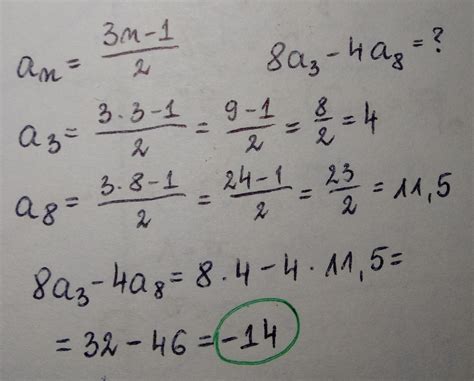 aₙ = (3n-1)/2   8a₃ - 4a₈ = ?
a₃ = (3·3-1)/2 = (9-1)/2 = 8/2 = 4
a₈ = (3·8-1)/2 = (24-1)/2 = 23/2 = 11,5
8a₃ - 4a₈ = 8·4 - 4·11,5 =
= 32 - 46 = -14